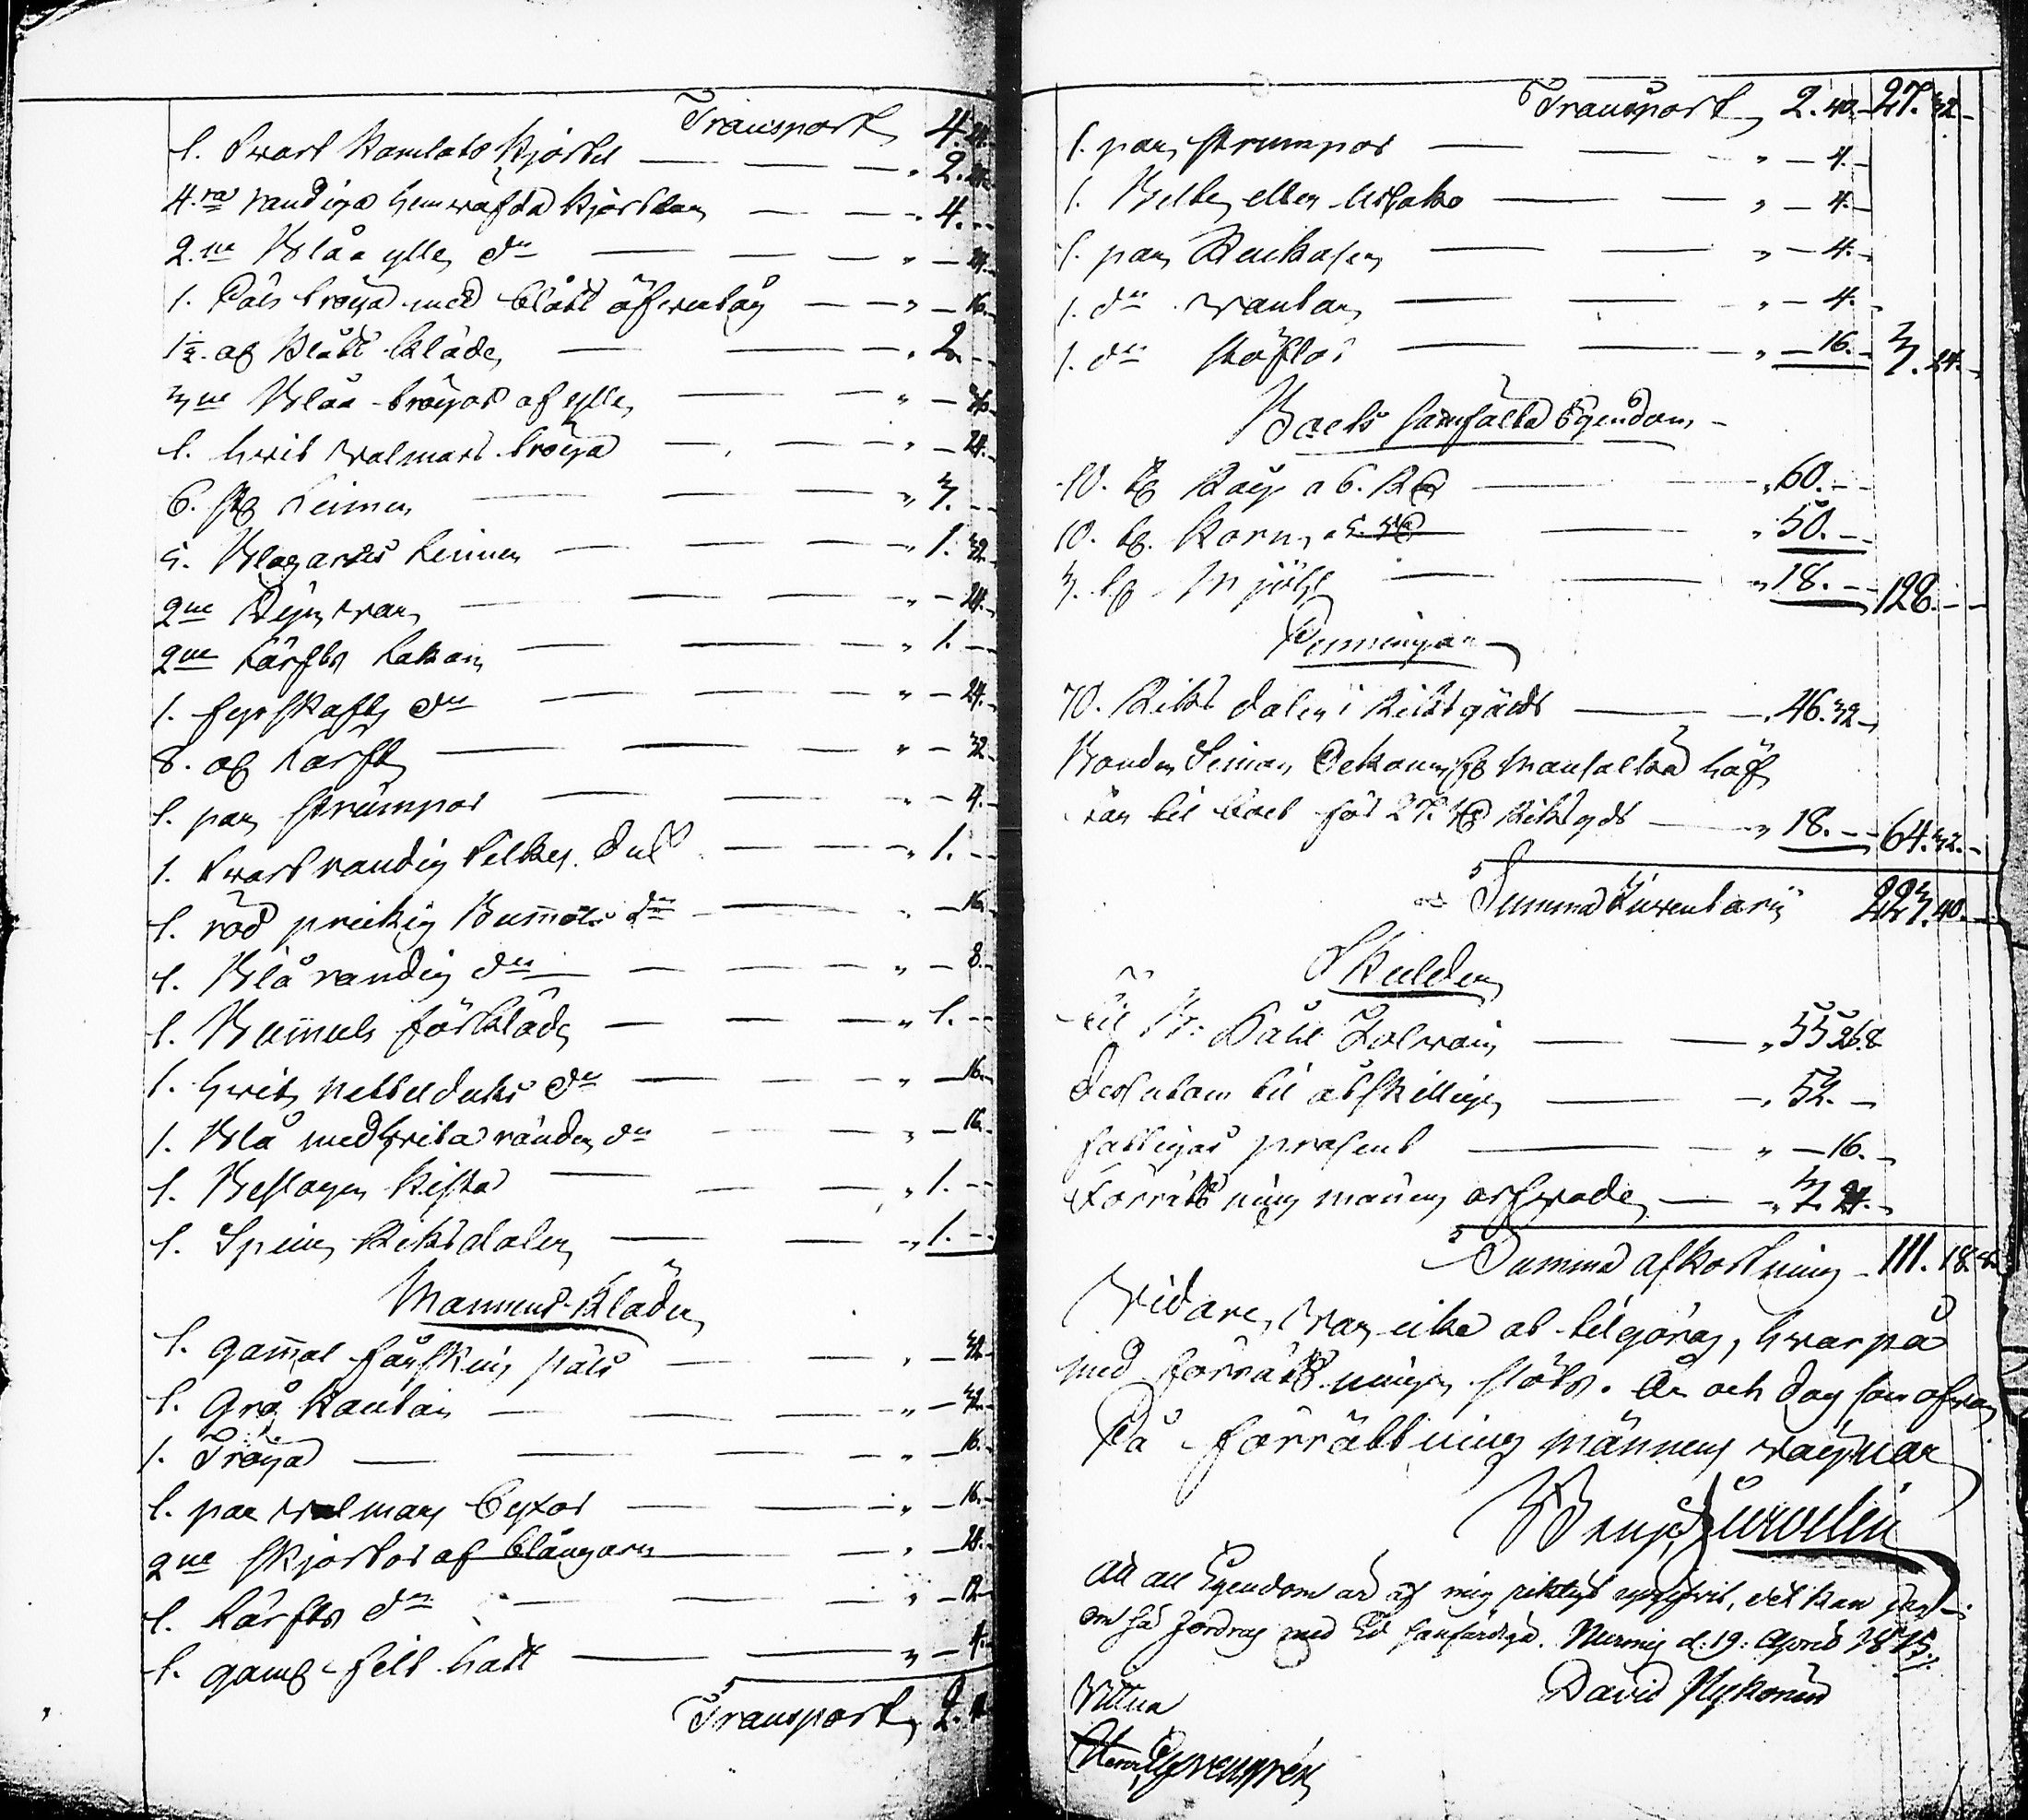 Transport 4.
1. Swart Kamlots Kjortel — — „ 2.
4.ra randiga hemwäfda Kjortlar — — „ 4. —
2.ne Blåa ylle d:o — — — „ —
1. Päls tröya med blått öfwertåg — — „ — 16.
1½. al: Blått Kläde — — „ 2. —
3ne Blåa tröyor af ylle — — „ —
1. hwit walmars tröya — — „ — 24.
6. st: Leinen — — — „ 3. —
5. Blagarns Leinen — — — „ 1. 32.
2ne Dyn war — — — „ — 24.
2ne Lärfts Lakan — — — „ 1. —
1. fyrskaft d:o — — — „ — 24.
8. al: Lärft — — — „ — 32.
1. par strumpor — — — „ — 4.
1. Swart randig Silkes Duk — — „ 1. —
1. röd prickig Bummols d:o — — „ — 16.
1. Blå randig d:o — — — „ — 8.
1. Bumuls förkläde — — — „ 1. —
1. hwit nettelduks d:o — — — „ — 16.
1. Blå med hwita ränder d:o — — „ — 16.
1. Beslagen Kista — — — „ 1. —
1. Speciey Riksdaler — — „ 1. —
Mannens Kläder
1. gammal fårskins päls — — „ — 32.
1. Grå Kaftan — — — „ — 32.
1. Tröya — — — — „ — 16.
1. par walmars Byxor — — „ — 16.
2ne skjortor af blångarn — — „ — 24.
1. Lärfts d:o — — — „ — 12.
1. gam: filt hatt — — „ — 4.
Transport 2.
Transport 2. 40. 27. 32.
1. par strumpor — — „ — 4.
1. Belte eller — — „ — 4.
1. par — — „ — 4.
1. d:o wantar — — „ — 4.
1. d:o stöflor — — „ — 16. 3. 24.
Boets samfälta Egendom
10. t: Råg a 6. R — „ 60. —
10. t: Korn a 5. — „ 50. —
3. t: Mjöhl — — „ 18. — 128. —
Penningar
70. Riks daler i Riksgälds — „ 46. 32.
Bonden Simon Mansaltka häf
tar til boet för 27. Riksgds — „ 18. — 64. 32.
Summa Inventarii 223. 40.
Skulder
til — — „ 55 26. 8
desutom til åtskillige — „ 52. —
fattigas present — „ — 16.
Förrättning mannens arfwode — „ 3. 24.
Summa afkortning 111. 18. 8
Widare war icke at tilgöra, hwarpå
med förrättningen slöts. År och dag som ofwan
På förrättning männens wägnar
All all Egendom är af mig riktigt upgifwit, det kan jag
om så fordras med Ed sanfärdiga. d. 19: April 1815.
David
Wittna